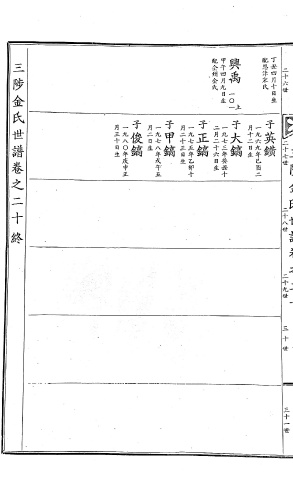 二十六世
丁丑四月十日生
興禹
一〇一上
甲午四月九日生
配全州金氏
二十七世
子英鎬
一九六九年己酉二
月十二日生
子大鎬
一九七三年癸丑十
二月二十六日生
子正鎬
一九七五年乙卯十
二月二十三日生
子甲鎬
一九七八年戊午五
月二日生
子俊鎬
二十八世
二十九世
三十世
三十一世
三陟金氏世譜卷之二十終